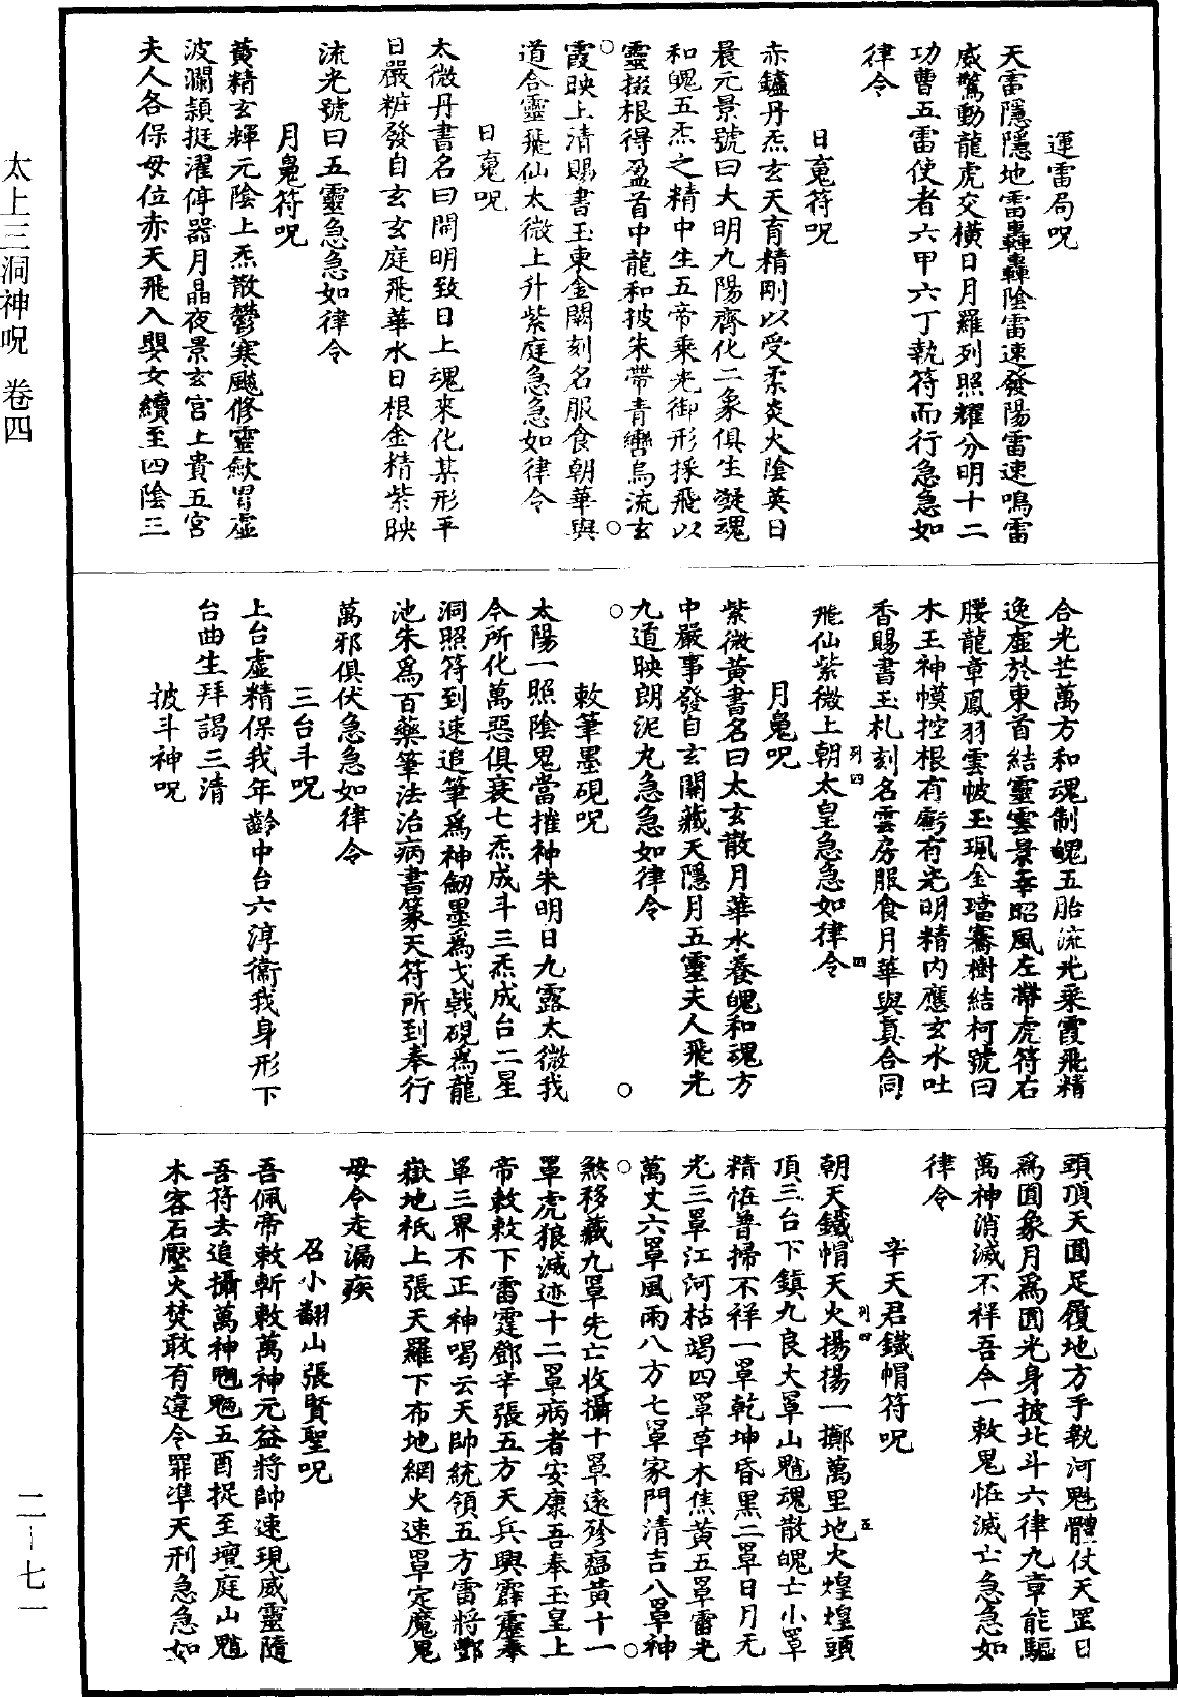 太上三洞神呪 卷四
二-七一
運雷局呪
天雷隱隱地雷轟轟陰雷速發陽雷速鳴雷
威驚動龍虎交橫日月羅列照耀分明十二
功曹五雷使者六甲六丁執符而行急急如
律令
日䰟符呪
赤鑪丹炁玄天育精剛以受柔炎火陰英日
晨元景號曰大明九陽齊化二象俱生凝魂
和魄五炁之精中生五帝乘光御形採飛以
靈掇根得盈首中龍和披朱帶青轡烏流玄
霞映上清賜書玉柬金闕刻名服食朝華與
道合靈飛仙太微上升紫庭急急如律令
日䰟呪
太微丹書名曰開明致日上魂來化某形平
日嚴粧發自玄玄庭飛華水日根金精紫映
流光號曰五靈急急如律令
月䰟符呪
黃精玄輝元陰上炁散鬱寒飈修靈歛胃虛
波瀾頴挺濯俜器月晶夜景玄宮上貴五宮
夫人各保母位赤天飛入嬰女續至四陰三
合光芒萬方和魂制魄五胎流光乘霞飛精
逸虛於東首結靈雲景幸昭風左帶虎符右
腰龍章鳳羽雲帔玉珮金璫騫樹結柯號曰
木王神幙控根有虧有光明精內應玄水吐
香賜書玉札刻名雲房服食月華與真合同
飛仙紫微上朝太皇急急如律令
列四
四
月䰟呪
紫微黃書名曰太玄散月華水養魄和魂方
中嚴事發自玄關藏天隱月五靈夫人飛光
九道映朗泥丸急急如律令
敕筆墨硯呪
太陽一照陰鬼當摧神朱明日九露太微我
令所化萬惡俱衰七炁成斗三炁成台二星
洞照符到速追筆爲神劒墨爲戈戟硯爲龍
池朱爲百藥筆法治病書篆天符所到奉行
萬邪俱伏急急如律令
三台斗呪
上台虛精保我年齡中台六淳衞我身形下
台曲生拜謁三清
披斗神呪
頭頂天圓足履地方手執河魁體仗天罡日
爲圓象月爲圓光身披北斗六律九章能驅
萬神消滅不祥吾今一敕鬼恠滅亡急急如
律令
辛天君鐵帽符呪
朝天鐵帽天火揚揚一擲萬里地火煌煌頭
列四
五
頂三台下鎮九良大罩山魈魂散魄亡小罩
精恠普掃不祥一罩乾坤昏黑二罩日月无
光三罩江河枯竭四罩草木焦黃五罩雷光
萬丈六罩風雨八方七罩家門清吉八罩神
煞移藏九罩先亡收攝十罩遠殄瘟黃十一
罩虎狼滅迹十二罩病者安康吾奉玉皇上
帝敕敕下雷霆鄧辛張五方天兵興霹靂奉
罩三界不正神喝云天帥統領五方雷將酆
嶽地衹上張天羅下布地網火速罩定魔鬼
毋令走漏疾
召小翻山張賢聖呪
吾佩帝敕斬敕萬神元益將帥速現威靈隨
吾符去追攝萬神魍魎五酉捉至壇庭山魈
木客石壓火焚敢有違令罪準天刑急急如